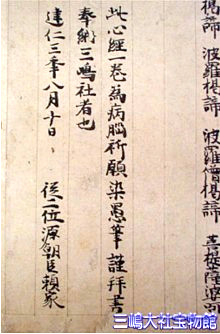 揭諦 波羅揭諦 波羅僧揭諦 菩提薩婆訶
此心經一巻為病脳祈願染愚筆謹拝書
奉納三嶋社者也
建仁三年八月十日 従二位源朝臣頼家
三嶋大社宝物館